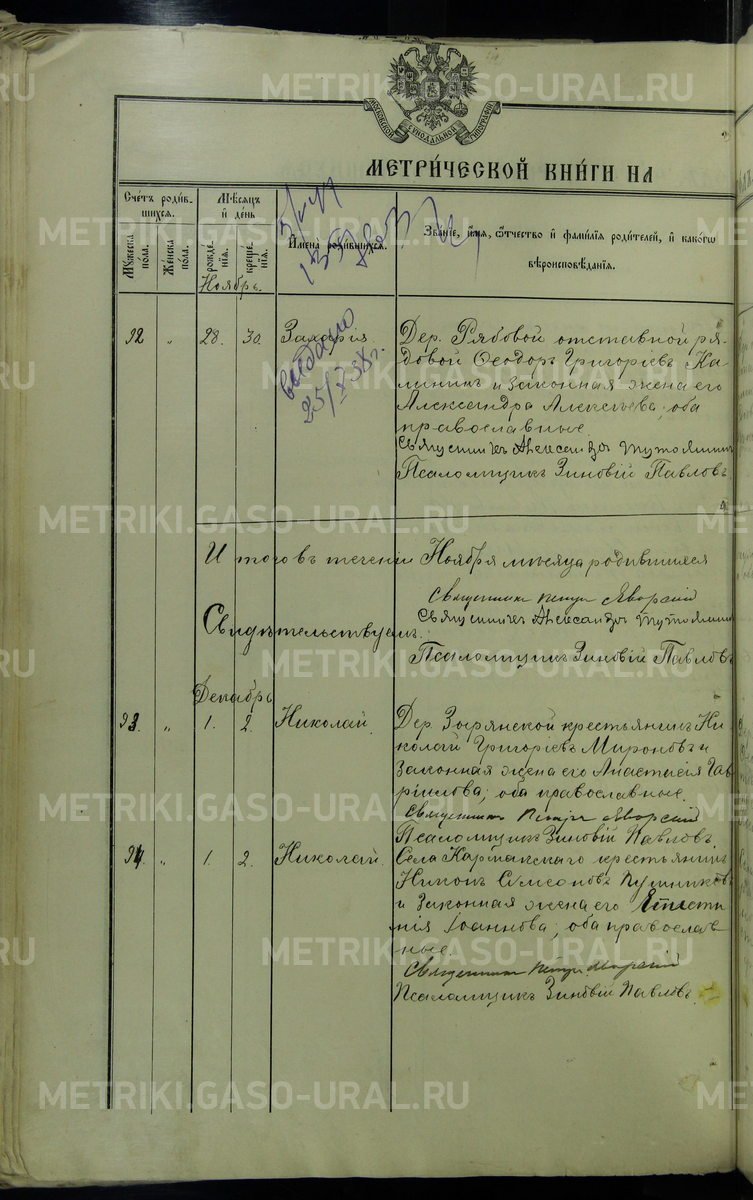 МОСКОВСКОЙ СѴНОДАЛЬНОЙ ТИПОГРАФІИ
МЕТРИ́ЧЕСКОЙ КНИ́ГИ НА
Сче́тъ роди́в-
шихся.
Му́жеска по́ла.
Же́нска по́ла.
Мѣ́сяцъ и҆ де́нь
рожде́нїѧ.
креще́нїѧ.
Имена̀ роди́вшихся.
Зва́нїе, и҆́мя, ѻ҆́тчество и҆ фами́лїя роди́телей, и҆ како́гѡ
вѣроисповѣ́данїя.
Ноябрь.
92 „ 28. 30. Захарія
выдано
25/X 38 г.
Дер. Рябовой отставной ря-
довой Ѳеодоръ Григоріевъ Ка-
лининъ и законная жена его
Александра Алексѣева; оба
православные
Священникъ Александръ Тутолминъ
Псаломщикъ Зиновій Павловъ
Итого въ теченіи Ноября мѣсяца родившихся
Священникъ Петръ Яворскій
Свидѣтельствуемъ:
Священникъ Александръ Тутолминъ
Псаломщикъ Зиновій Павловъ
Декабрь
93. „ 1. 2. Николай
Дер. Зырянской крестьянинъ Ни-
колай Григоріевъ Мироновъ и
законная жена его Анастасія Гав-
ріилова; оба православные.
Священникъ Петръ Яворскій
Псаломщикъ Зиновій Павловъ
94. „ 1. 2. Николай.
Села Кармакскаго крестьянинъ
Никонъ Сѵмеоновъ
и законная жена его
нія Іоаннова; оба православ-
ные.
Священникъ Петръ Яворскій
Псаломщикъ Зиновій Павловъ.
METRIKI.GASO-URAL.RU